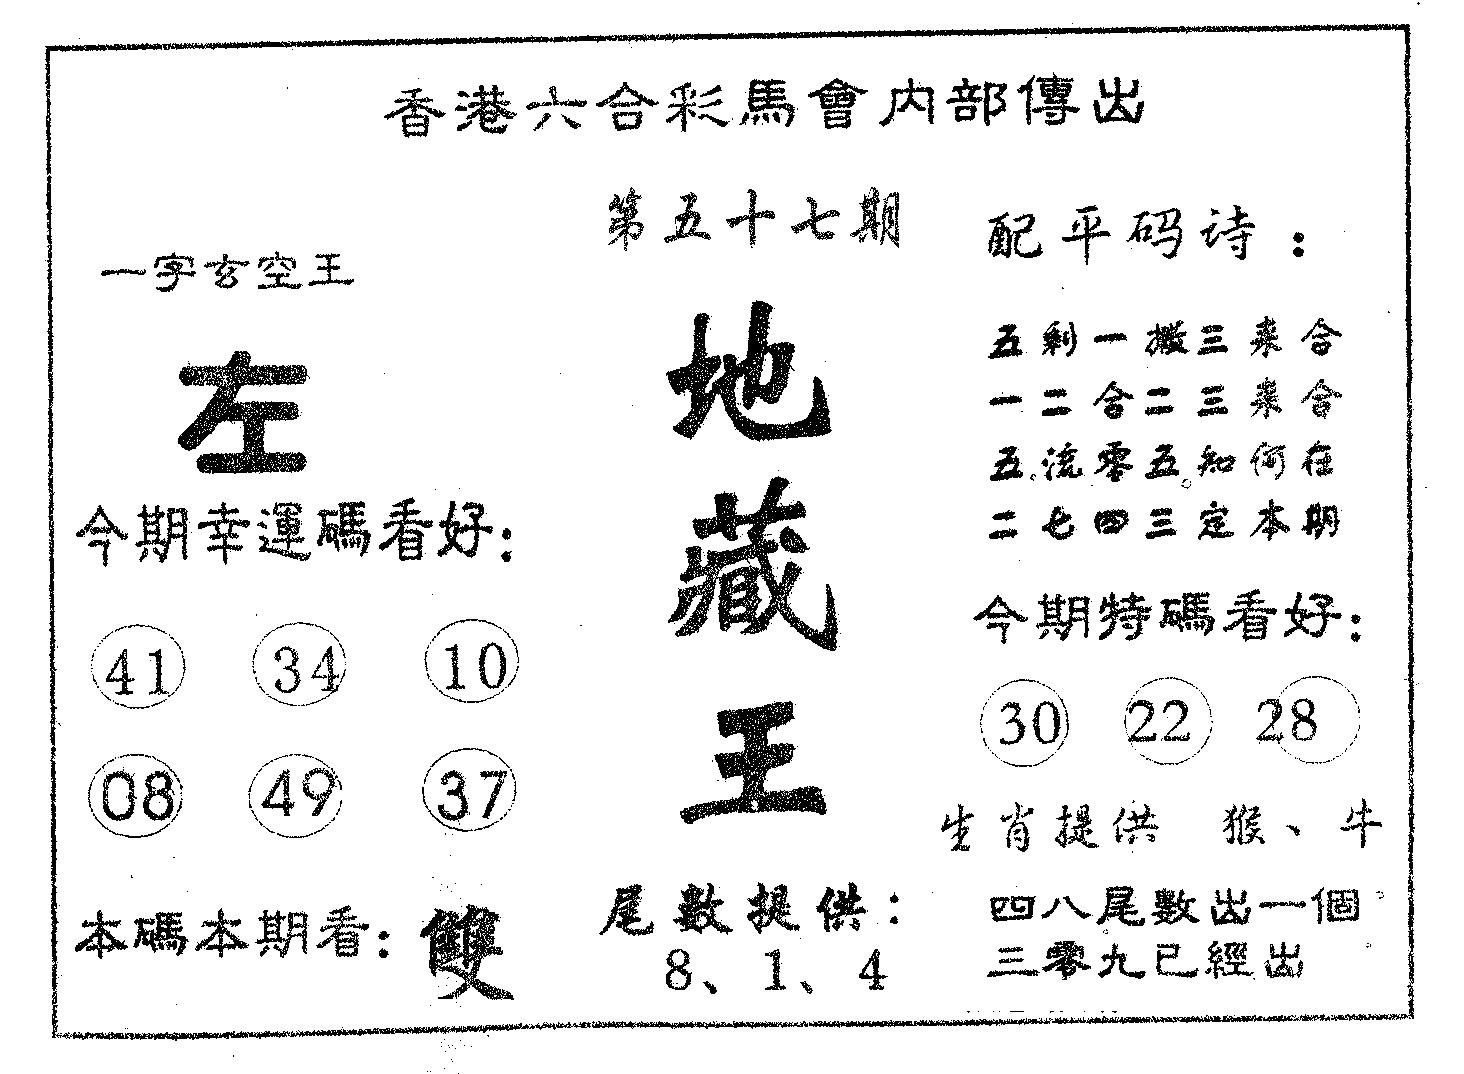 香港六合彩馬會内部傳出
第五十七期
一字玄空王
左
今期幸運碼看好：
41 34 10
08 49 37
本碼本期看：雙
地藏王
尾數提供：
8、1、4
配平码诗：
五剩一搬三来合
一二合二三来合
五流零五知何在
二七四三定本期
今期特碼看好：
30 22 28
生肖提供 猴、牛
四八尾數出一個
三零九已經出